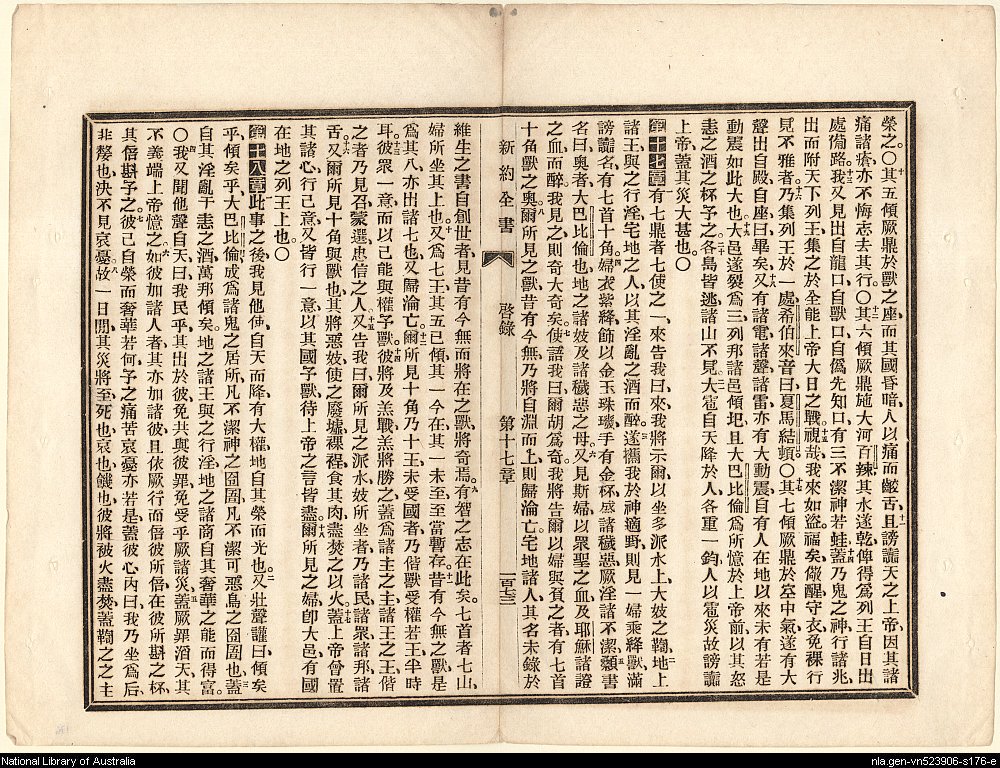 榮之○其五傾厥鼎於獸之座而其國昏暗人以痛而齩舌且謗讟天之上帝因其諸
痛諸瘡亦不悔志去其行○其六傾厥鼎施大河百辣其水遂乾俾得爲列王自日出
處備路我又見出自龍口自獸口自僞先知口有三不潔神若蛙蓋乃鬼之神行諸兆
出而附天下列王集之於全能上帝大日之戰視哉我來如盜福矣儆醒守衣免裸行
見不雅者乃集列王於一處希伯來音曰夏馬結頓○其七傾厥鼎於空中氣遂有大
聲出自殿自座曰畢矣又有諸電諸聲諸雷亦有大動震自有人在地以來未有若是
動震如此大也大邑遂裂爲三列邦諸邑傾圯且大巴比倫爲所憶於上帝前以其怒
恚之酒之杯予之各島皆逃諸山不見大雹自天降於人各重一鈞人以雹災故謗讟
上帝蓋其災大甚也○
第十七章有七鼎者七使之一來告我曰來我將示爾以坐多派水上大妓之鞫地上
諸王與之行淫宅地之人以其淫亂之酒而醉遂攜我於神適野則見一婦乘絳獸滿
謗讟名有七首十角婦衣紫絳飾以金玉珠璣手有金杯盛諸穢惡厥淫諸不潔顙書
名曰奧者大巴比倫也地之諸妓及諸穢惡之母又見斯婦以衆聖之血及耶穌諸證
之血而醉我見之則奇大奇矣使語我曰爾胡爲奇我將告爾以婦與負之者有七首
十角獸之奧爾所見之獸昔有今無乃將自淵而上則歸淪亡宅地諸人其名未錄於
新約全書 啓錄 第十七章 一百七三
維生之書自創世者見昔有今無而將在之獸將奇焉有智之志在此矣七首者七山
婦所坐其上也又爲七王其五已傾其一今在其一未至至當暫存昔有今無之獸是
爲其八亦出諸七也又歸淪亡爾所見十角乃十王未受國者乃偕獸受權若王半時
耳彼衆一意而以己能與權予獸彼將及羔戰羔將勝之蓋爲諸主之主諸王之王偕
之者乃見召蒙選忠信之人又告我曰爾所見之派水妓所坐者乃諸民諸衆諸邦諸
舌又爾所見十角與獸也其將惡妓使之廢墟裸裎食其肉盡焚之以火蓋上帝曾置
其諸心行己意又皆行一意以其國予獸待上帝之言皆盡爾所見之婦卽大邑有國
在地之列王上也○
第十八章此事之後我見他使自天而降有大權地自其榮而光也又壯聲讙曰傾矣
乎傾矣乎大巴比倫成爲諸鬼之居所凡不潔神之囹圄凡不潔可惡鳥之囹圄也蓋
自其淫亂于恚之酒萬邦傾矣地之諸王與之行淫地之諸商自其奢華之能而得富
○我又聞他聲自天曰我民乎其出於彼免共與彼罪免受乎厥諸災蓋厥罪滔天其
不義端上帝憶之如彼加諸人者其亦加諸彼且依厥行而倍彼所倍在彼所斟之杯
其倍斟予之彼己自榮而奢華若何予之痛苦哀憂亦若是蓋彼心內曰我乃坐爲后
非嫠也決不見哀憂故一日閒其災將至死也哀也饑也彼將被火盡焚蓋鞫之之主
National Library of Australia
nla.gen-vn523906-s176-e